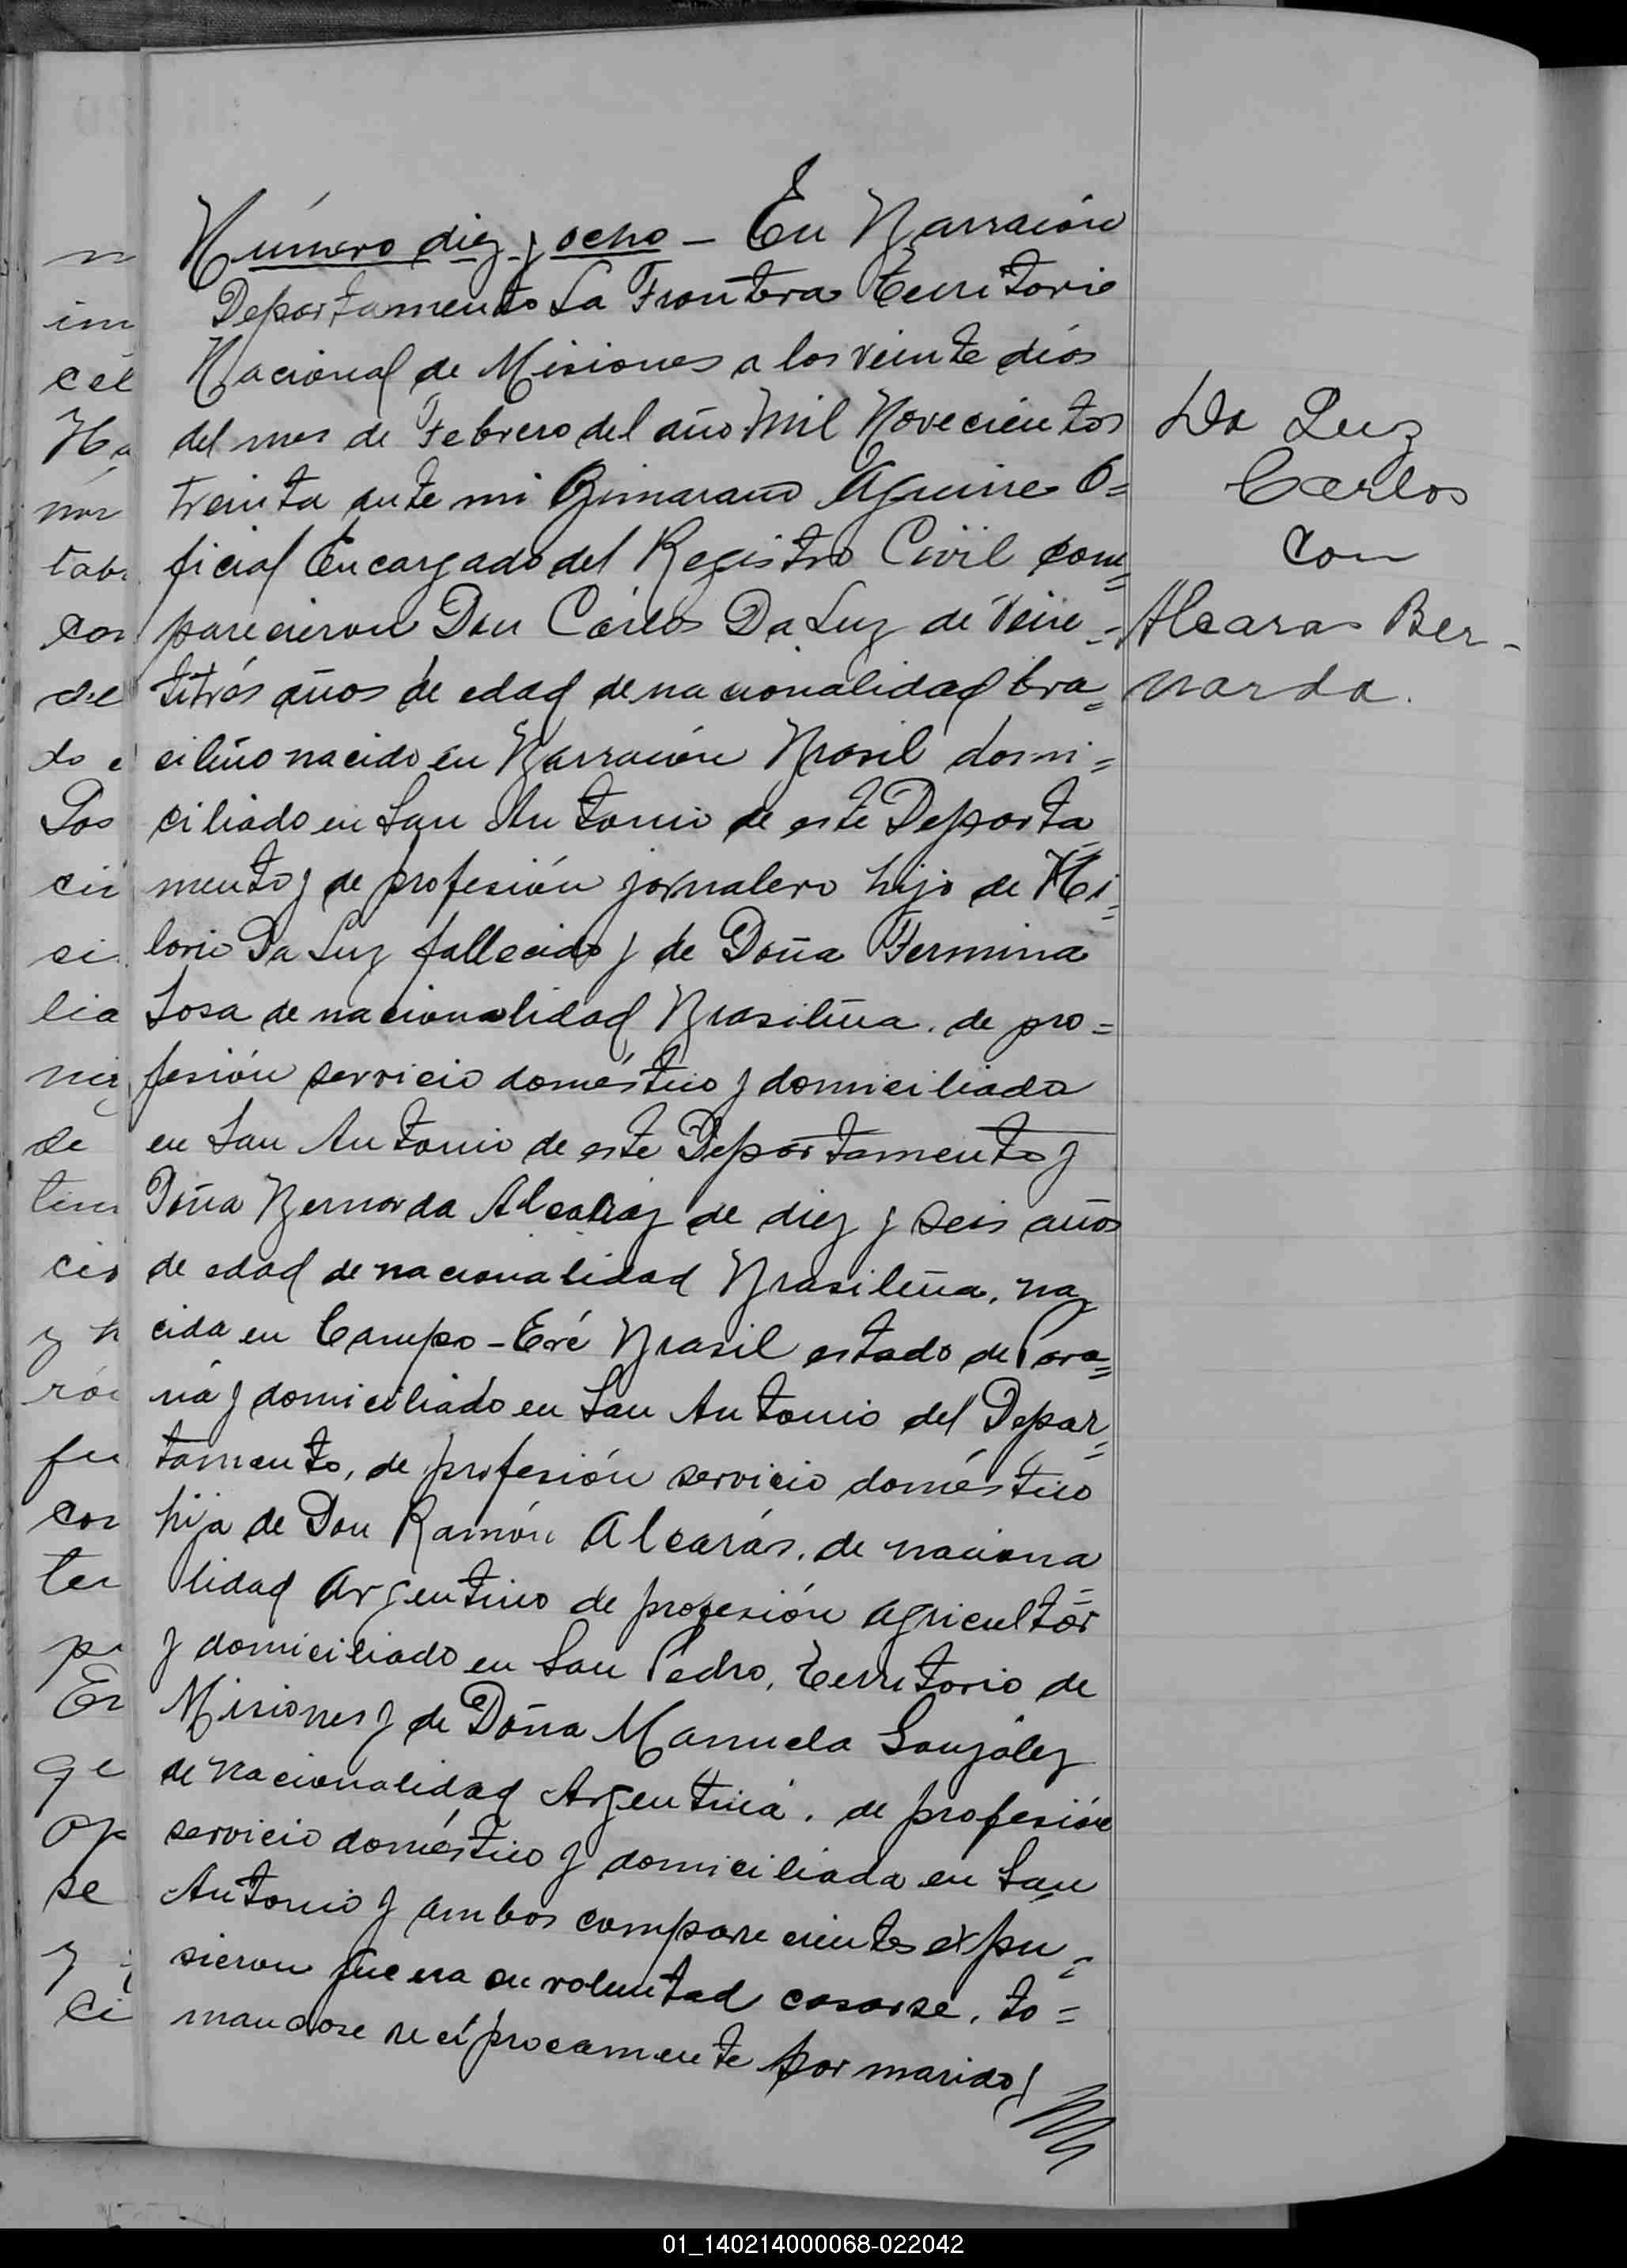 Número diez y ocho – En Barracón
Departamento La Frontera Territorio
Nacional de Misiones a los veinte dias
del mes de Febrero del año Mil Novecientos
treinta ante mi Aguirre O=
ficial Encargado del Registro Civil com=
parecieron Don Cárlos Da Luz de Vein=
titrés años de edad de nacionalidad bra=
cileño nacido en Barracón Brasil domi=
ciliado en San Antonio de este Departa=
mento y de profesión jornalero hijo de Hi=
lorio Da Luz fallecido y de Doña Fermina
Sosa de nacionalidad Brasileña. de pro=
fesión servicio doméstico y domiciliada
en San Antonio de este Departamento y
Doña Bernarda Alcaraz de diez y seis años
de edad de nacionalidad Brasileña, na=
cida en Campo-Eré Brasil estado de Para=
ná y domiciliado en San Antonio del Depar=
tamento, de profesión servicio doméstico
hija de Don Ramón Alcarás. de naciona=
lidad Argentino de profesión agricultor
y domiciliado en San Pedro, Territorio de
Misiones y de Doña Manuela González
de nacionalidad Argentina. de profesión
servicio doméstico y domiciliada en San
Antonio y ambos comparecientes expu=
sieron que era su voluntad casarse, to=
mandose recíprocamente por marido y
Da Luz
Carlos
con
Alcaras Ber-
narda.
01_140214000068-022042